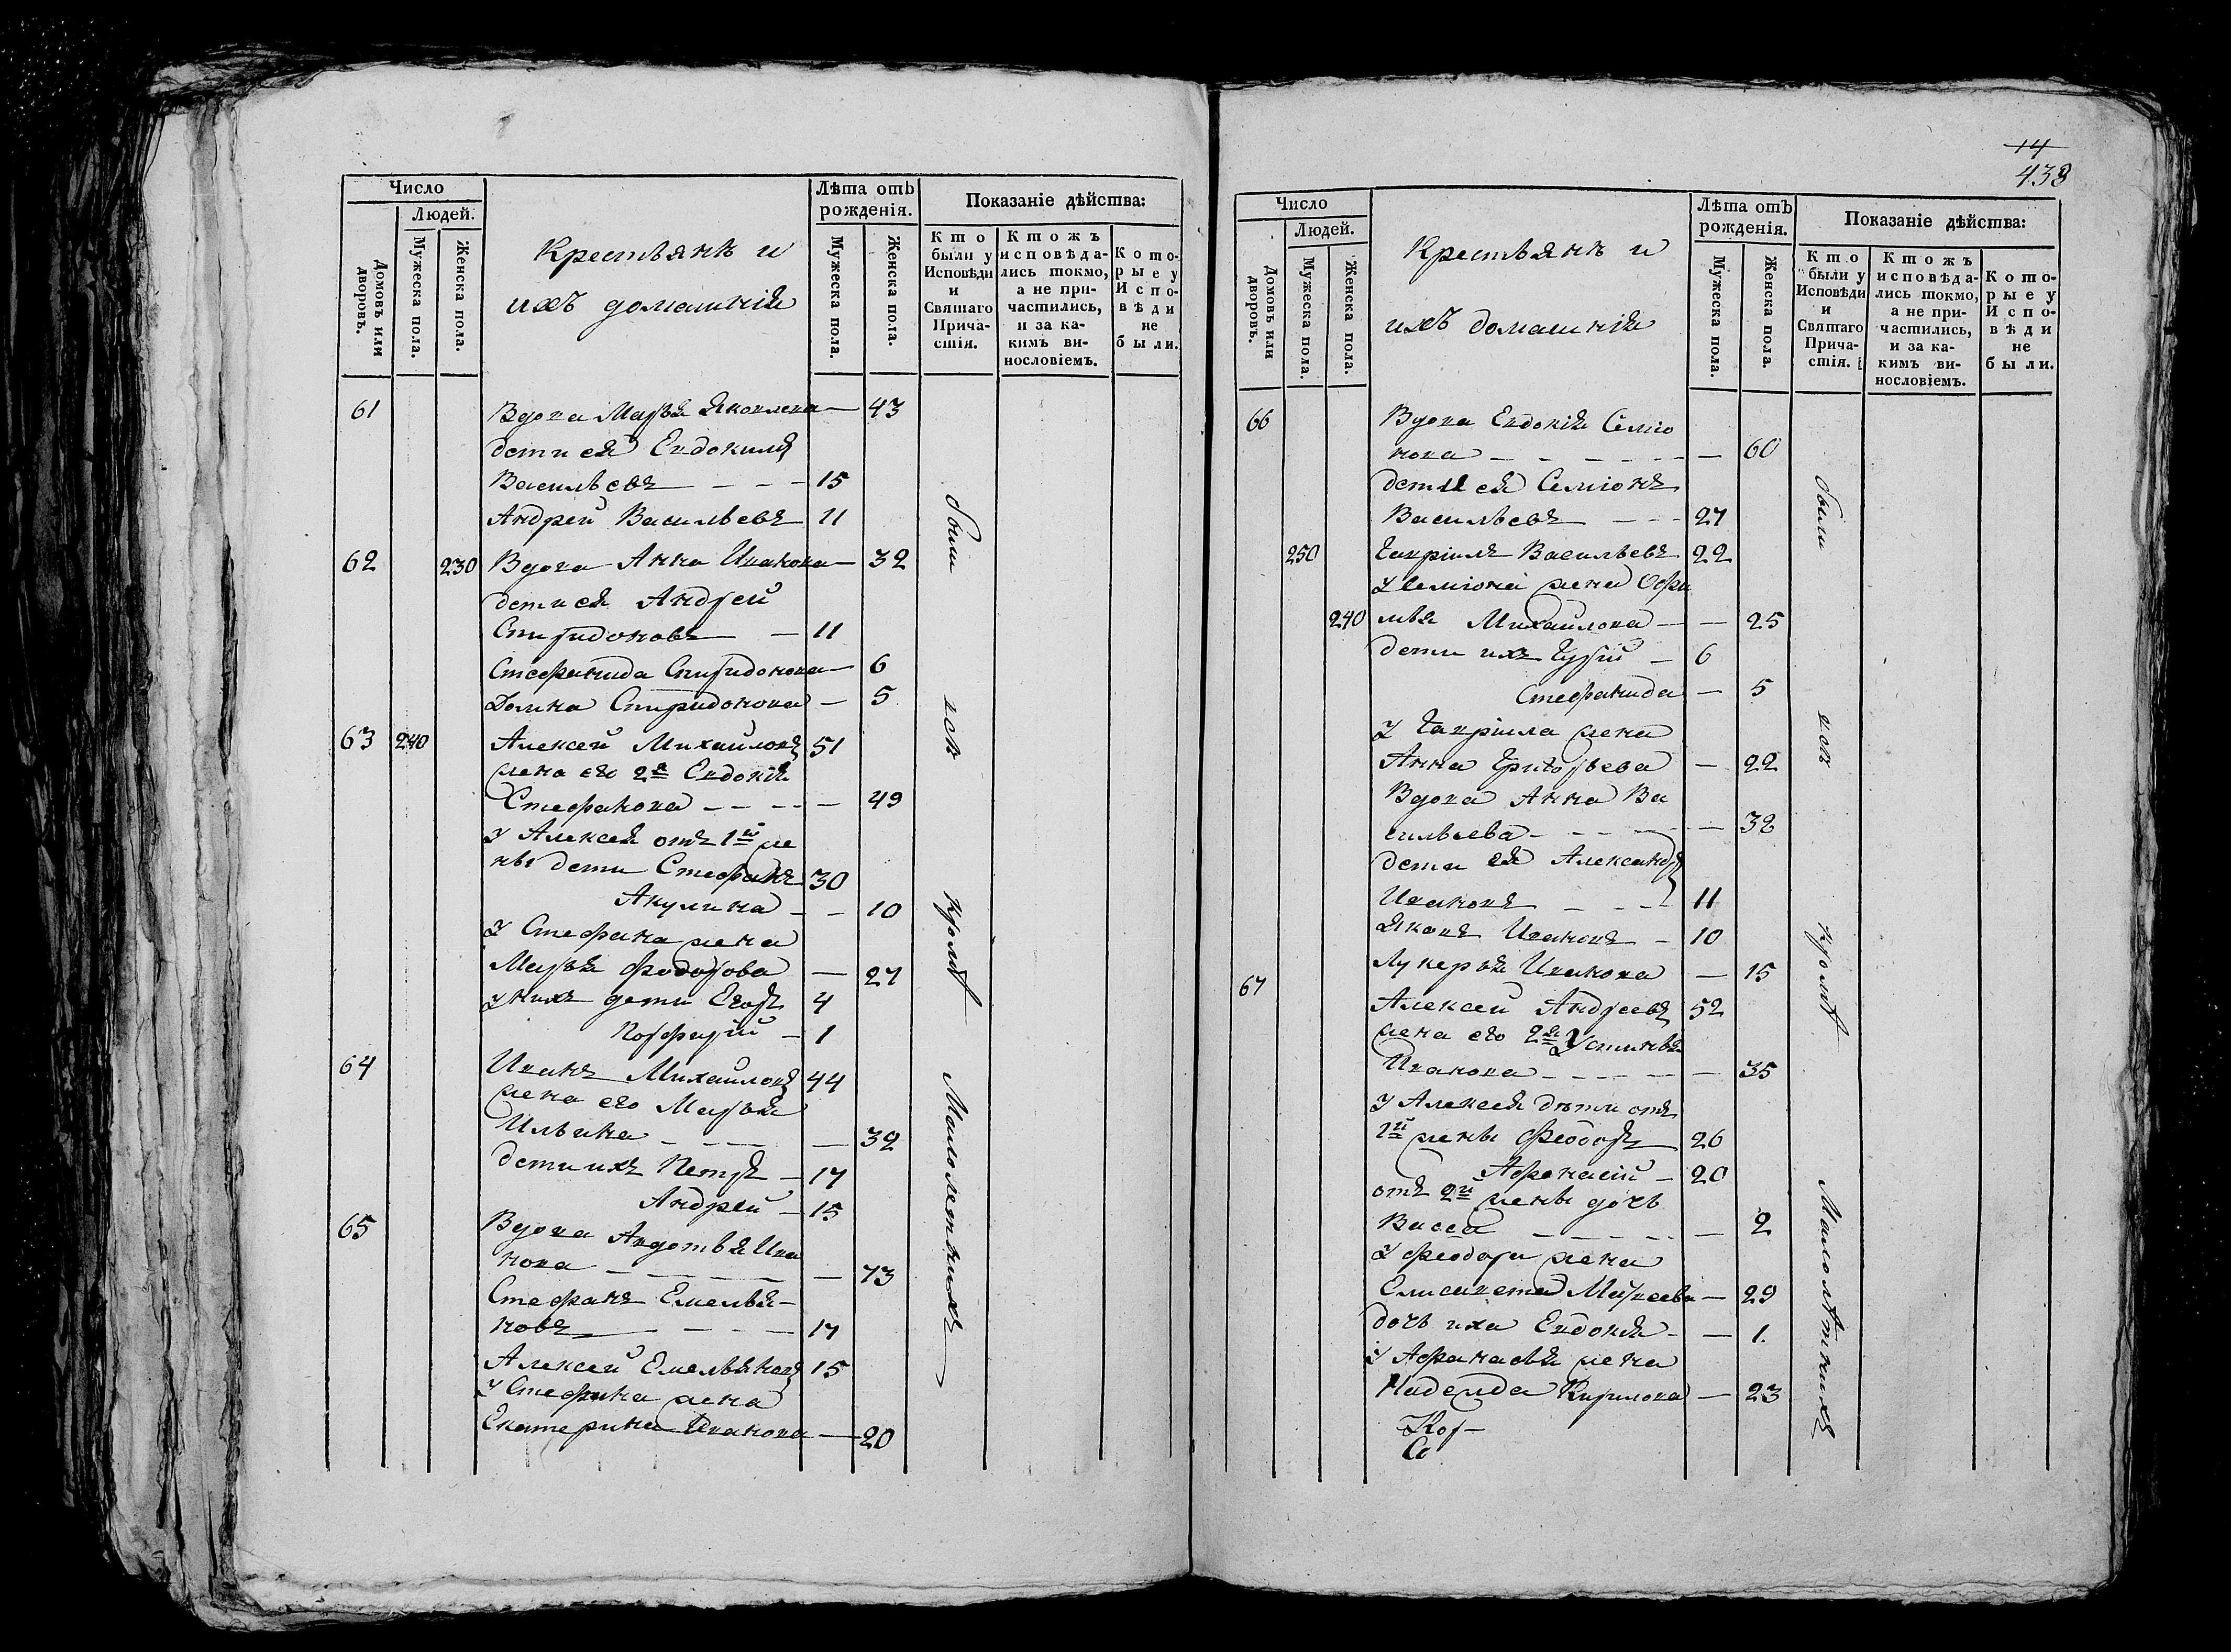 Число
Людей.
Домовъ или дворовъ.
Мужеска пола.
Женска пола.
Крестьянъ и
ихъ домашнія
Лѣта отъ рожденія.
Мужеска пола.
Женска пола.
Показаніе дѣйства:
Кто были у Исповѣди и Святаго Причастія.
Ктожъ исповѣдались токмо, а не причастились, и за какимъ винословіемъ.
Которые у Исповѣди не были.
61 Вдова Марья Яковлева — 43
дети ея Евдокимъ
Васильевъ - - - 15
Андрей Васильевъ 11
62 230 Вдова Анна Иванова — 32
дети ея Андрей
Спиридоновъ — 11
Стефанида Спиридонова — 6
Домна Спиридонова — 5
63 240 Алексей Михаиловъ 51
жена его 2я Евдокія
Стефанова - - - - 49
У Алексея отъ 1й же
ны дети Стефанъ 30
Акулина - - 10
У Стефана жена
Марья Федорова — 27
у нихъ дети Егоръ 4
Порфирій - 1
64 Иванъ Михаиловъ 44
жена его Марья
Ильина - - - — 39
дети ихъ Петръ - 17
Андрей - 15
65 Вдова Авдотья Ива
нова - - - - — 73
Стефанъ Емелья-
новъ - - - 17
Алексей Емельяновъ 15
У Стефана жена
Екатерина Иванова — 20
были
все
кромѣ
Малолетнихъ
14
438
Число
Людей.
Домовъ или дворовъ.
Мужеска пола.
Женска пола.
Крестьянъ и
ихъ домашнія
Лѣта отъ рожденія.
Мужеска пола.
Женска пола.
Показаніе дѣйства:
Кто были у Исповѣди и Святаго Причастія.
Ктожъ исповѣдались токмо, а не причастились, и за какимъ винословіемъ.
Которые у Исповѣди не были.
66 Вдова Евдокія Семіо
нова - - - - - — 60
дети ея Семіонъ
Васильевъ - - - 27
250 Гавріилъ Васильевъ 22
У Семіона жена Офи
240 мья Михаилова - — 25
дети ихъ Гурій - 6
Стефанида — 5
У Гавріила жена
Анна Григорьева — 22
Вдова Анна Ва
сильева - - - - — 32
дети ея Александръ
Ивановъ - - - 11
Яковъ Ивановъ - 10
Лукерья Иванова — 15
67 Алексей Андреевъ 52
жена его 2я Устинья
Иванова - - - - — 35
У Алексея дѣти отъ
1й жены Феодоръ 26
Афанасій - 20
отъ 2й жены дочь
Васса - - - - - 2
У Феодора жена
Елисавета Матвеева — 29
дочь ихъ Евдокія - — 1.
У Афанасья жена
Надежда Кирилова — 23
были
все
кромѣ
Малолѣтнихъ